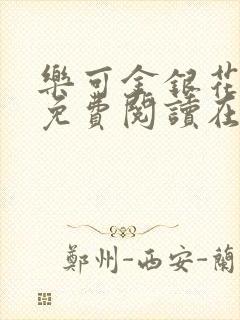 樂可金銀花
免費閱讀在
鄭州-西安-蘭